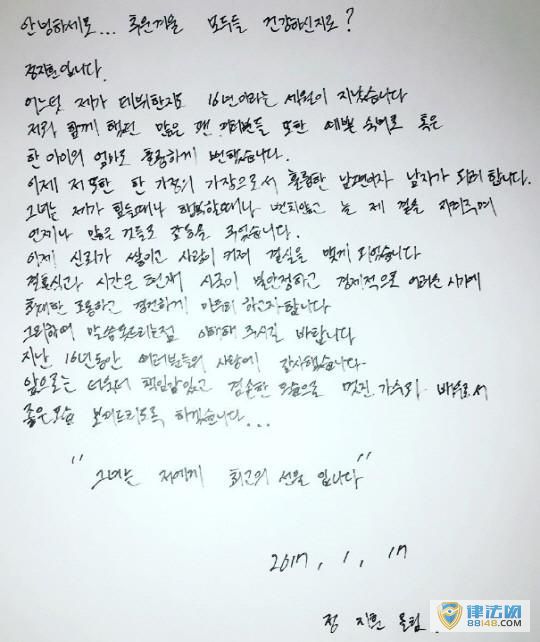 안녕하세요... 추운겨울 모두들 건강하신지요?
정지훈입니다.
어느덧 제가 데뷔한지도 16년이라는 세월이 지났습니다
저와 함께 했던 많은 팬 여러분들 또한 예쁜 숙녀로 혹은
한 아이의 엄마로 훌륭하게 변했습니다.
이제 저 또한 한 가정의 가장으로서 훌륭한 남편이자 남자가 되려 합니다.
그녀는 제가 힘들때나 행복할때나 변치않고 늘 제 곁을 지켜주며
언제나 많은 것들로 감동을 주었습니다.
이제 신뢰가 쌓이고 사랑이 커져 결실을 맺게 되었습니다
결혼식과 시간은 현재 시국이 불안정하고 경제적으로 어려운 시기에
최대한 조용하고 경건하게 마무리 하고자합니다
그리하여 말씀못드리는점 이해해 주시길 바랍니다
지난 16년동안 여러분들의 사랑에 감사했습니다
앞으로는 더욱더 책임감있고 겸손한 모습으로 멋진 가수와 배우로서
좋은모습 보여드리도록 하겠습니다...
" 그녀는 저에게 최고의 선물 입니다 "
2017. 1. 17
정 지훈 올림.
律法网
88148.COM